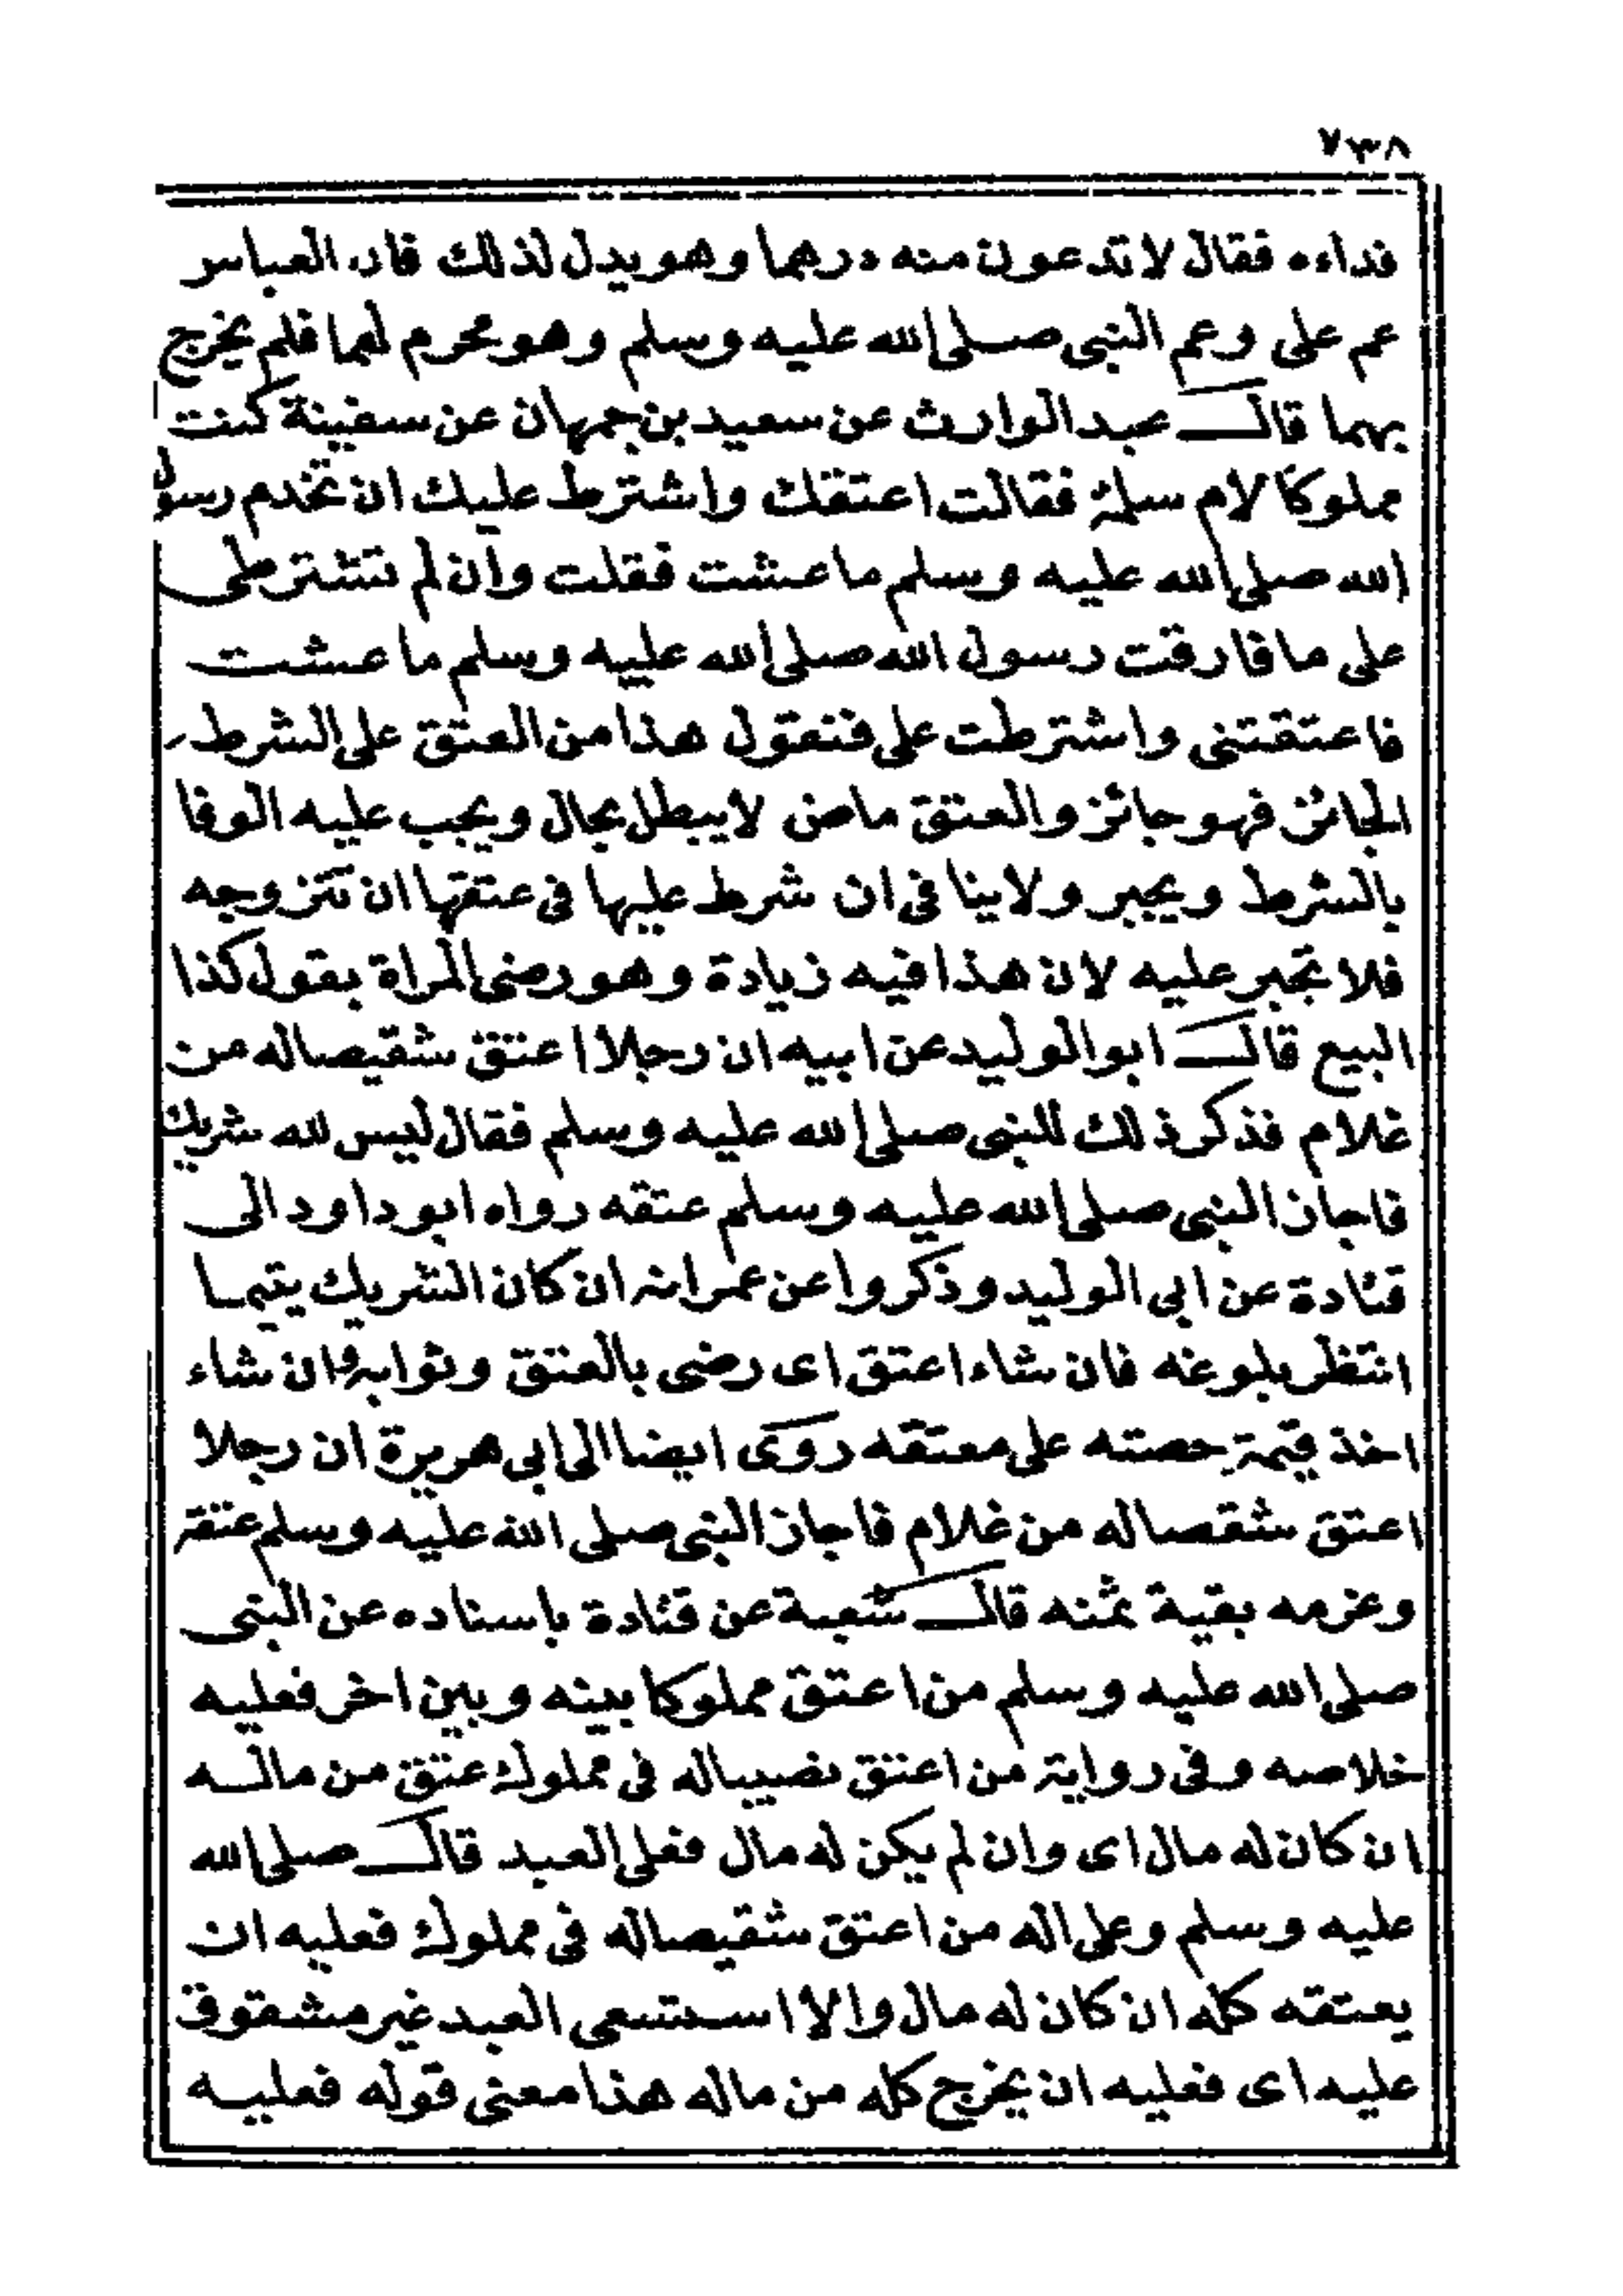 ٧٣٨
فداءه فقال لا تدعون منه درهما وهو يدل لذلك فان العباس
عم على وعم النبى صلى الله عليه وسلم وهو محرم لهما فلم يخرج
بهما قال عبد الوارث عن سعيد بن جمهان عن سفينة كنت
مملوكا لام سلمة فقالت اعتقك واشترط عليك ان تخدم رسول
الله صلى الله عليه وسلم ما عشت فقلت وان لم تشترطى
على ما فارقت رسول الله صلى الله عليه وسلم ما عشت
فاعتقتنى واشترطت على فنقول هذا من العتق على الشرط
الجائز فهو جائز والعتق ماض لا يبطل بحال ويجب عليه الوفا
بالشرط ويجبر ولا ينافى ان شرط عليها فى عتقها ان تتزوجه
فلا تجبر عليه لان هذا فيه زيادة وهو رضى المراة بقول كذا
البيع قال ابو الوليد عن ابيه ان رجلا اعتق شقيصا له من
غلام فذكر ذلك للنبى صلى الله عليه وسلم فقال ليس لله شريك
فاجاز النبى صلى الله عليه وسلم عتقه رواه ابو داود الى
قتادة عن ابى الوليد وذكروا عن عمر انه ان كان الشريك يتيما
انتظر بلوغه فان شاء اعتق اى رضى بالعتق وثوابه وان شاء
اخذ قيمة حصته على معتقه روى ايضا الى ابى هريرة ان رجلا
اعتق شقصا له من غلام فاجاز النبى صلى الله عليه وسلم عتقه
وغرمه بقية ثمنه قال شعبة عن قتادة باسناده عن النبى
صلى الله عليه وسلم من اعتق مملوكا بينه وبين اخر فعليه
خلاصه وفى رواية من اعتق نصيبا له فى مملوك عتق من ماله
ان كان له مال اى وان لم يكن له مال فعلى العبد قال صلى الله
عليه وسلم وعلى اله من اعتق شقيصا له فى مملوك فعليه ان
يعتقه كله ان كان له مال والا استسعى العبد غير مشقوق
عليه اى فعليه ان يخرج كله من ماله هذا معنى قوله فعليه